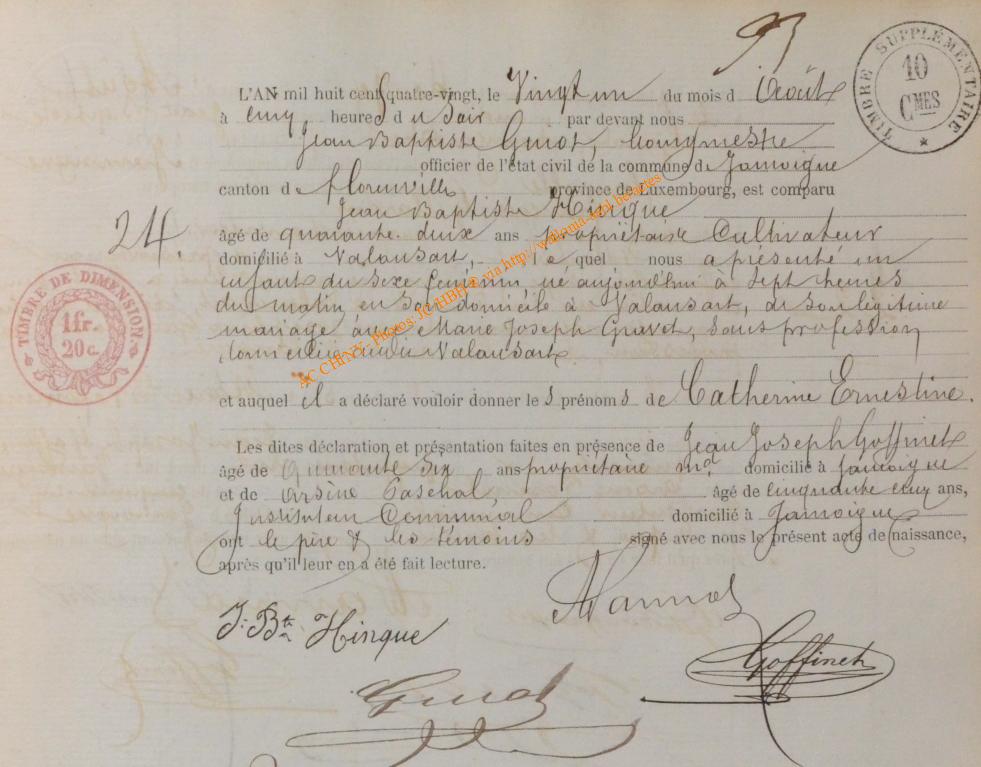 TIMBRE SUPPLÉMENTAIRE
10
CMES
*
L'AN mil huit cent quatre-vingt, le Vingt un du mois d Août
à cinq heures du Soir par devant nous
Jean Baptiste Guiot, bourgmestre
officier de l'état civil de la commune de Jamoigne
canton de florenville province de Luxembourg, est comparu
Jean Baptiste Hinque
24.
âgé de quarante deux ans propriétaire Cultivateur
domicilié à Valansart, lequel nous a présenté un
enfant du Sexe féminin né aujourd'hui à Sept heures
du matin en son domicile à Valansart, de son légitime
mariage avec Marie Joseph Gravet, sans profession
domiciliée Valansart
TIMBRE DE DIMENSION
1fr.
20c.
AC CHINY- Photos: JC HBH@ via http://wallonia-gen1.be/actes
et auquel il a déclaré vouloir donner le s prénom s de Catherine Ernestine.
Les dites déclaration et présentation faites en présence de Jean Joseph Goffinet
âgé de quarante Six ans propriétaire md domicilié à Jamoigne
et de Arsène Paschal âgé de Cinquante cinq ans,
Instituteur Communal domicilié à Jamoigne
ont le père & les témoins signé avec nous le présent acte de naissance,
après qu'il leur en a été fait lecture.
J. Bte Hinque
Goffinet
Guiot